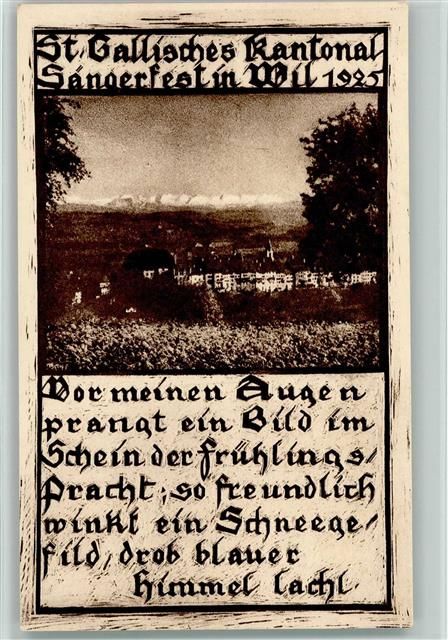 St. Gallisches Kantonal
Sängerfest in Wil 1925
Vor meinen Augen
prangt ein Bild im
Schein der Frühlings/
Pracht; so freundlich
winkt ein Schneege/
fild, drob blauer
Himmel lacht.